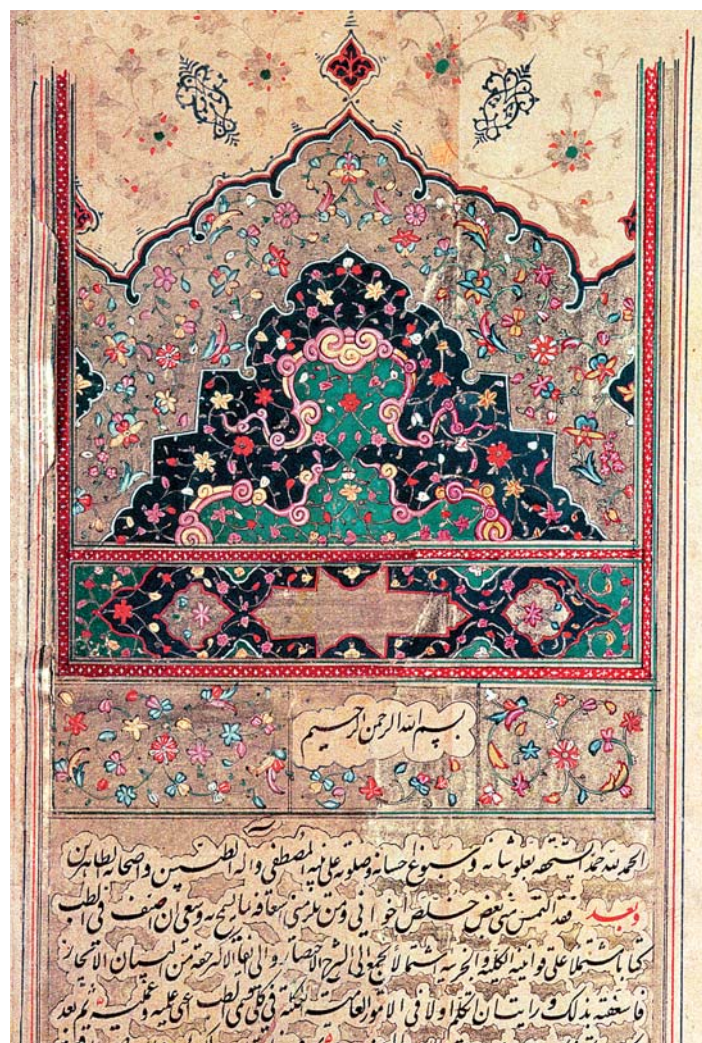 بسم الله الرحمن الرحيم
الحمد لله حمدا يستحقه بعلو شانه وسبوغ احسانه وصلوته على نبيه المصطفى واله الطيبين واصحابه الطاهرين
وبعد فقد التمس منى بعض خلص اخوانى ومن يلزمنى اسعافه بما يسمح به وسعى ان اصنف فى الطب
كتابا مشتملا على قوانينه الكلية والجزئية اشتمالا يجمع الى الشرح الاختصار والى ايفاء الاكثر حقه من البيان الايجاز
فاسعفته بذلك ورايت ان اتكلم اولا فى الامور العامة الكلية فى كلى قسمى الطب اعنى علميه وعمليه ثم بعد